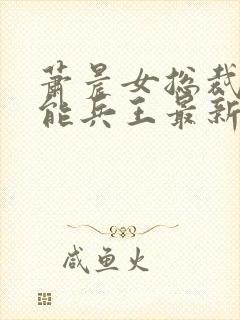 萧晨女总裁
能兵王最新
咸鱼火